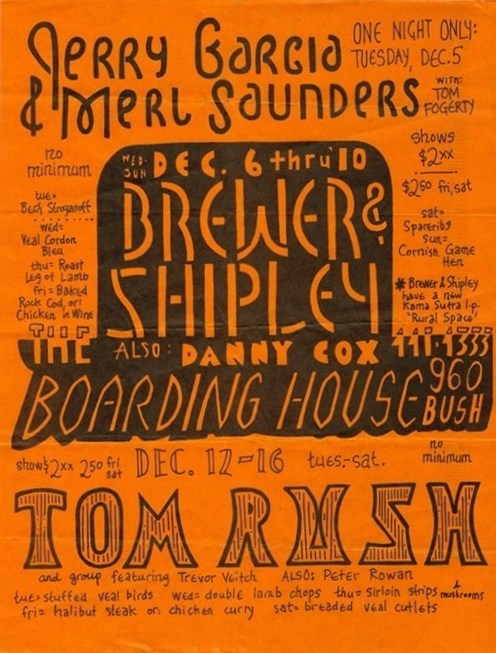 Jerry Garcia
& Merl Saunders
ONE NIGHT ONLY:
TUESDAY, DEC. 5
with:
TOM
FOGERTY
shows
$2xx
$250 fri, sat
no
minimum
tue=
Beef Stroganoff
wed=
Veal Cordon
Bleu
thu= Roast
Leg of Lamb
fri= Baked
Rock Cod, or:
Chicken in Wine
WED-
SUN
DEC. 6 thru 10
BREWER &
SHIPLEY
sat=
Spareribs
sun=
Cornish Game
Hen
* Brewer & Shipley
have a new
Kama Sutra l.p.
"Rural Space"
ALSO: DANNY COX
THE
BOARDING HOUSE
960
BUSH
shows $2xx 250 fri
sat
DEC. 12-16
tues.-sat.
no
minimum
TOM RUSH
and group featuring Trevor Veitch ALSO: Peter Rowan
tue= stuffed veal birds wed= double lamb chops thu= sirloin strips & mushrooms
fri= halibut steak or: chicken curry sat= breaded veal cutlets